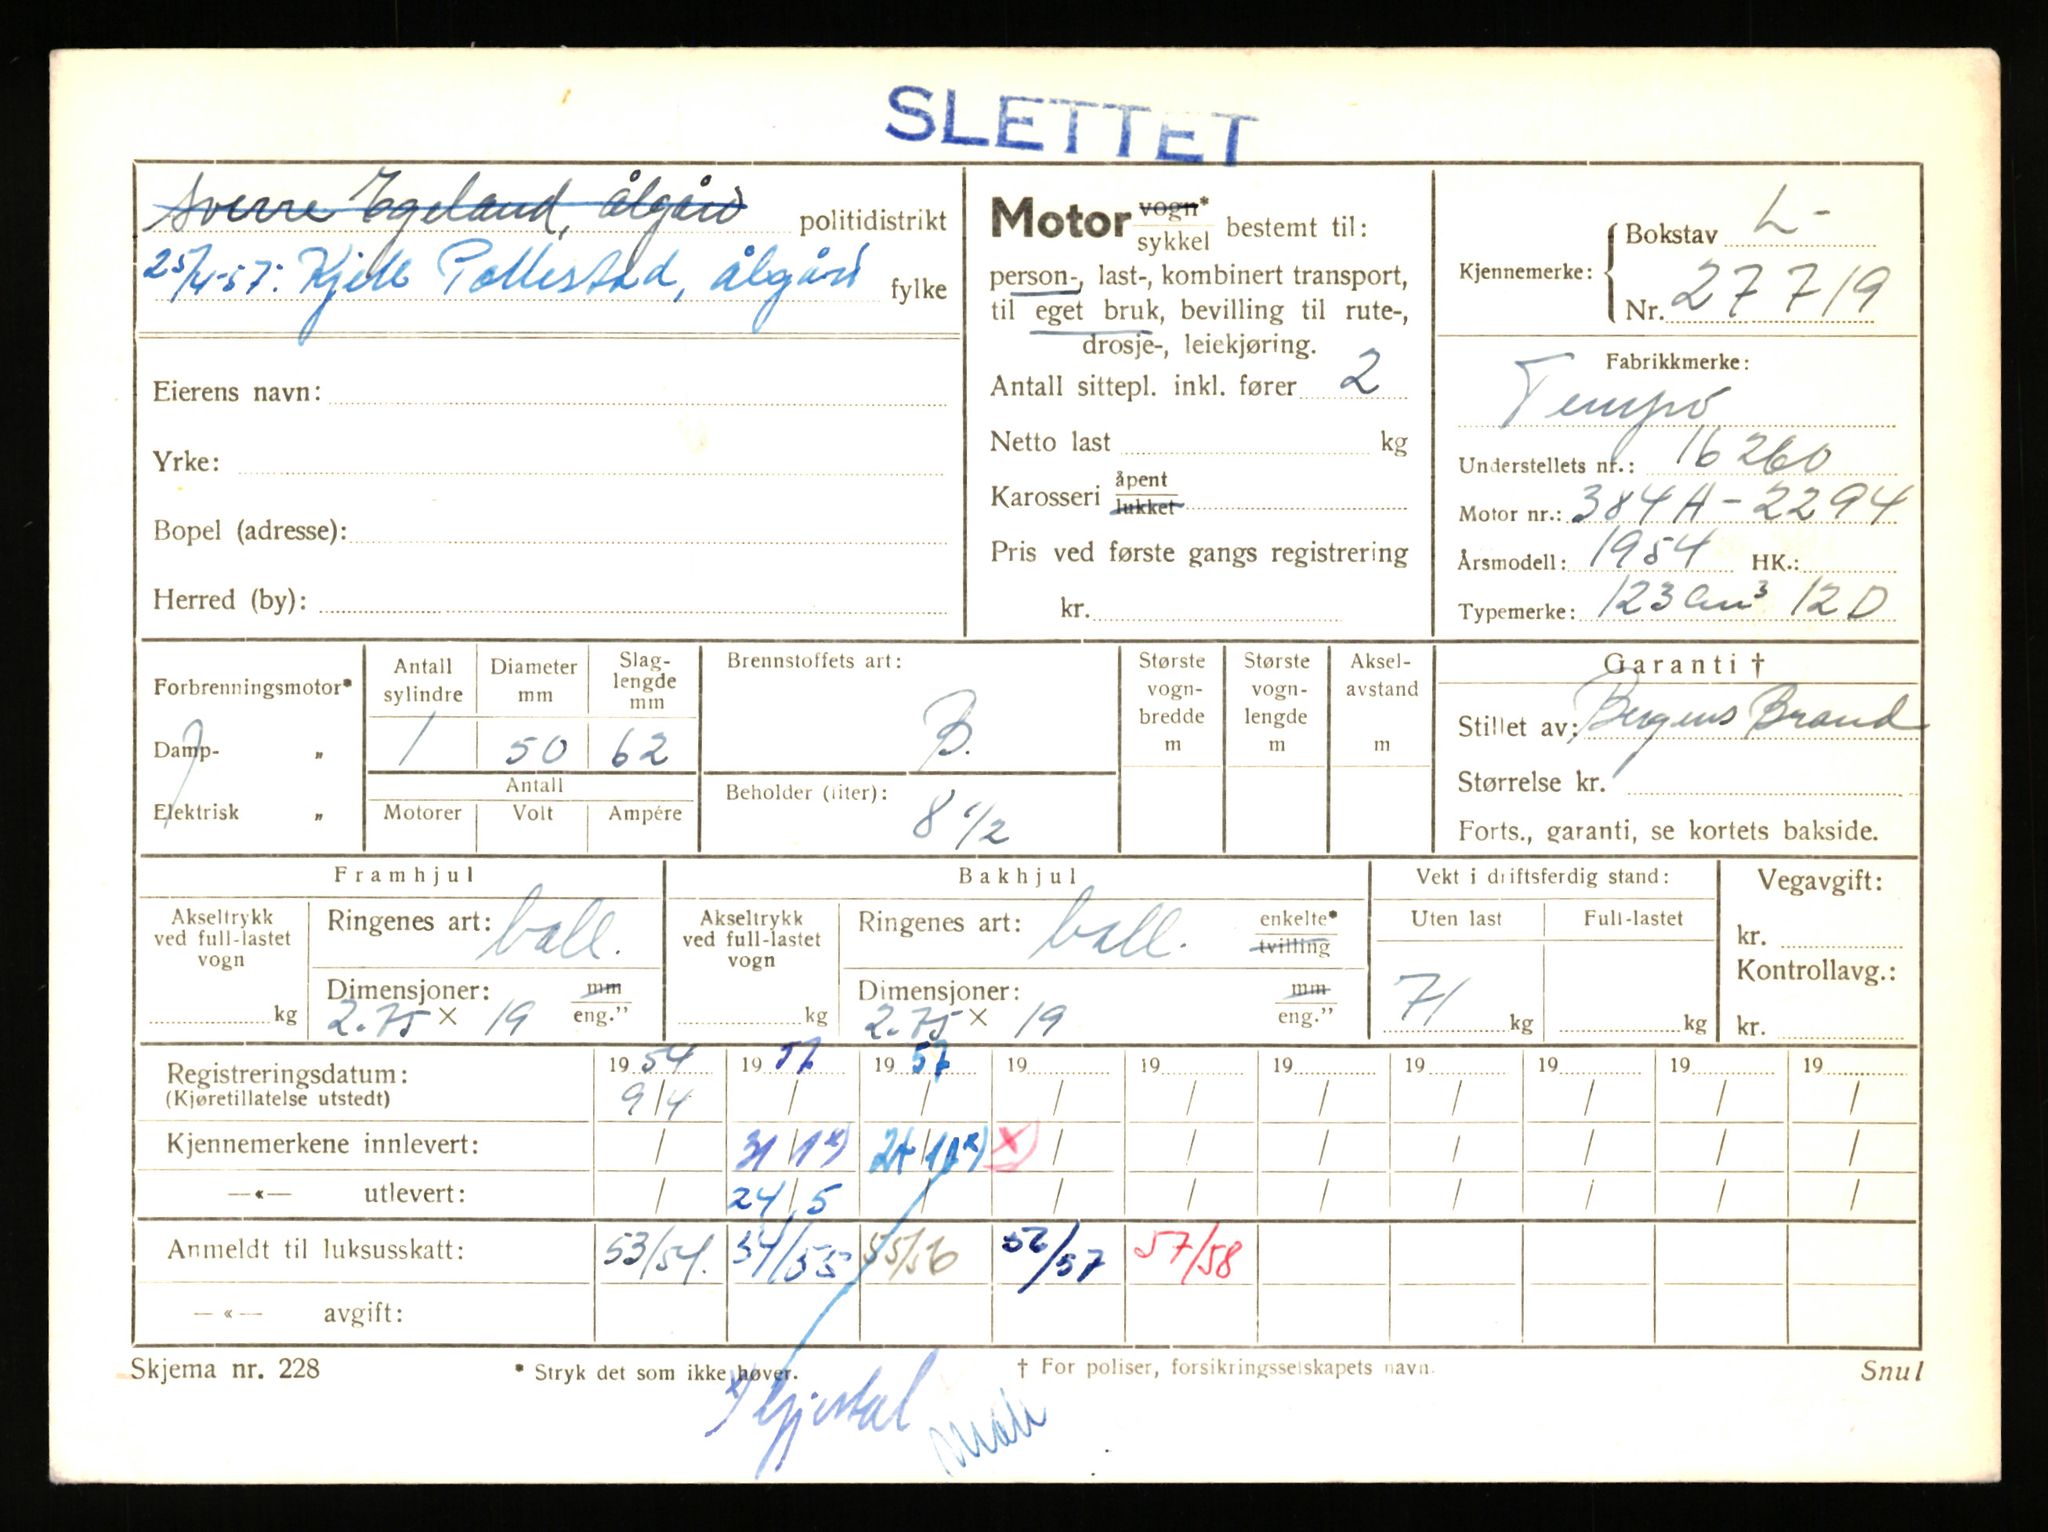 SLETTET
Sverre Egeland, Ålgård politidistrikt
25/4-57: Kjell Pollestad, Ålgård fylke
Eierens navn:
Yrke:
Bopel (adresse):
Herred (by):
Motor vogn* sykkel bestemt til:
person-, last-, kombinert transport,
til eget bruk, bevilling til rute-,
drosje-, leiekjøring.
Antall sittepl. inkl. fører 2
Netto last kg
Karosseri åpent lukket
Pris ved første gangs registrering
kr.
Kjennemerke: Bokstav L-
Nr. 27719
Fabrikkmerke:
Tempo
Understellets nr.: 16260
Motor nr.: 384A-2294
Årsmodell: 1954 HK.:
Typemerke: 123 cm³ 12D
Forbrenningsmotor*
Damp- „
Elektrisk „
Antall sylindre 1
Diameter mm 50
Slaglengde mm 62
Antall
Motorer Volt Ampére
Brennstoffets art: B.
Beholder (liter): 8 1/2
Største vognbredde m
Største vognlengde m
Akselavstand m
Garanti †
Stillet av: Bergens Brand
Størrelse kr.
Forts., garanti, se kortets bakside.
Framhjul
Akseltrykk ved full-lastet vogn kg
Ringenes art: ball.
Dimensjoner: mm
2.75 x 19 eng."
Bakhjul
Akseltrykk ved full-lastet vogn kg
Ringenes art: ball. enkelte* tvilling
Dimensjoner: mm
2.75 x 19 eng."
Vekt i driftsferdig stand:
Uten last Full-lastet
71 kg kg
Vegavgift:
kr.
Kontrollavg.:
kr.
Registreringsdatum: 1954 1957 1957 19 19 19 19 19 19 19
(Kjøretillatelse utstedt) 9/4 / / / / / / / / /
Kjennemerkene innlevert: / 31/1 x) x) x) / / / / / / /
—«— utlevert: / 24/5 / / / / / / / /
Anmeldt til luksusskatt: 53/54. 54/55 55/56 56/57 57/58
—«— avgift:
Skjema nr. 228 * Stryk det som ikke høver. † For poliser, forsikringsselskapets navn. Snul
x)